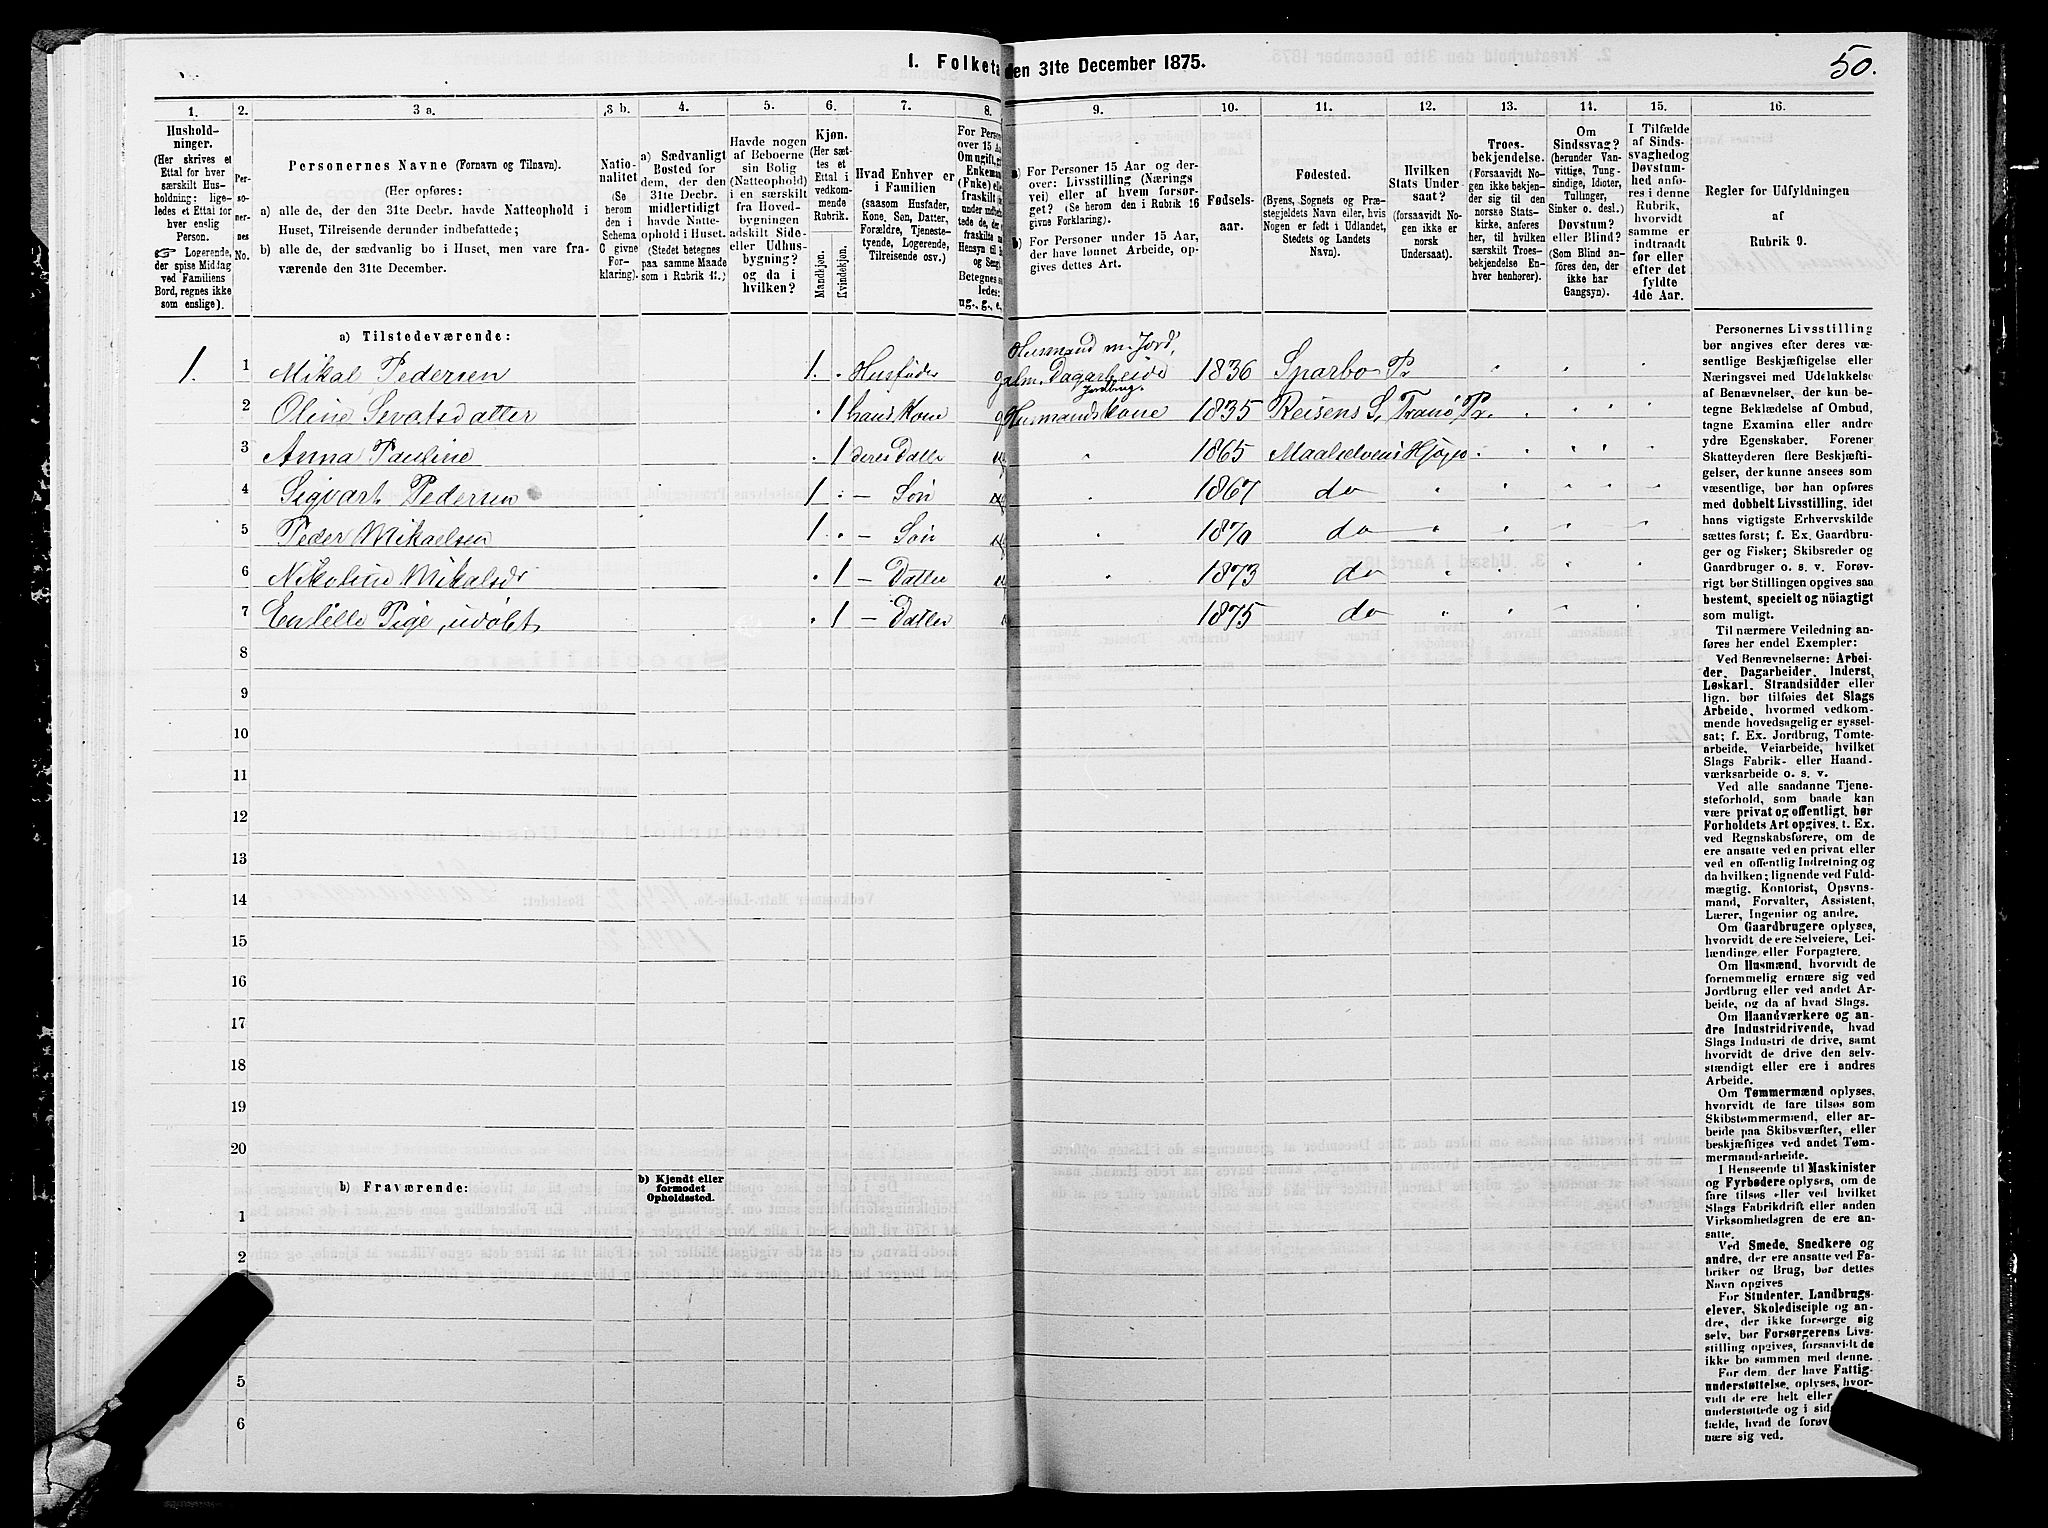 50.
1. Folketæ den 31te December 1875.
1. 2. 3 a. 3 b. 4. 5. 6. 7. 8. 9. 10. 11. 12. 13. 14. 15. 16.
Husholdninger.
(Her skrives et
Ettal for hver
særskilt Husholdning:
ligeledes et Ettal for
hver enslig
Person.
Logerende,
der spise Middag
ved Familiens
Bord, regnes ikke
som enslige.)
Personernes No.
Personernes Navne (Fornavn og Tilnavn).
(Her opføres:
a) alle de, der den 31te Decbr. havde Natteophold i
Huset, Tilreisende derunder indbefattede;
b) alle de, der sædvanlig bo i Huset, men vare fraværende den 31te December.
Nationalitet
(Se
herom
den i
Schema
6 givne
Forklaring).
a) Sædvanligt
Bosted for
dem, der den
31te Decbr.
midlertidigt
havde Natteophold i Huset.
(Stedet betegnes
paa samme Maade
som i Rubrik 11.)
Havde nogen
af Beboerne
sin Bolig
(Natteophold)
i en særskilt
fra Hovedbygningen
adskilt Side-
eller Udhusbygning?
og da i
hvilken?
Kjøn.
(Her sættes et
Ettal i
vedkommende
Rubrik.
Mandkjøn.
Kvindekjøn.
Hvad Enhver er
i Familien
(saasom Husfader,
Kone, Søn, Datter,
Forældre, Tjenestetyende, Logerende,
Tilreisende osv.)
For Person
over 15 Aa
Om ugift, gi
Enkeman
(Enke) elle
fraskilt
Betegnes sa
ledes:
ug., g., e.,
a) For Personer 15 Aar og derover: Livsstilling (Næringsvei) eller af hvem forsørget? (Se herom den i Rubrik 16
givne Forklaring).
b) For Personer under 15 Aar,
der have lønnet Arbeide, opgives dettes Art.
Fødselsaar.
Fødested.
(Byens, Sognets og Præstegjeldets Navn eller, hvis
Nogen er født i Udlandet,
Stedets og Landets
Navn).
Hvilken
Stats Undersaat?
(forsaavidt Nogen ikke er
norsk
Undersaat).
Troesbekjendelse.
(Forsaavidt Nogen ikke bekjender sig til den
norske Statskirke, anføres
her, til hvilken
særskilt Troesbekjendelse Enhver henhører).
Om
Sindssvag?
(herunder Vanvittige, Tungsindige, Idioter,
Tullinger,
Sinker o. desl.)
Døvstum?
eller Blind?
(Som Blind anføres den, der
ikke har
Gangsyn).
I Tilfælde
af Sindssvaghed og
Døvstumhed anføres i denne
Rubrik,
hvorvidt
samme er
indtraadt
før eller
efter det
fyldte
4de Aar.
Regler for Udfyldningen
af
Rubrik 9.
a) Tilstedeværende:
1. 1 Mikal Pedersen 1. Husfader g Husmand m. Jord, alm. Dagarbeide 1836 Sparbo Pr
2 Oline Sivalsdatter 1 hans Kone g Husmandskone Jordbrug. 1835 Reisens S, Tranø, Pr.
3 Anna Pauline 1 deres Datter 1865 Maalselvens Hjøjn
4 Sigvart Pedersen 1 — Søn 1867 do
5 Peder Mikaelsen 1 — Søn 1870 do
6 Nikoline Mikalsdr 1 — Datter 1873 do
7 En lille Pige, udøbt 1 — Datter 1875 do
8
9
10
11
12
13
14
15
16
17
18
19
20
b) Fraværende: b) Kjendt eller
formodet
Opholdssted.
1
2
5
6
Personernes Livsstilling
bør angives efter deres væsentlige Beskjæftigelse eller
Næringsvei med Udelukkelse
af Benævnelser, der kun betegne Beklædelse af Ombud,
tagne Examina eller andre
ydre Egenskaber. Forener
Skatteyderen flere Beskjæftigelser, der kunne ansees som
væsentlige, bør han opføres
med dobbelt Livsstilling, idet
hans vigtigste Erhvervskilde
sættes først; f. Ex. Gaardbruger og Fisker; Skibsreder og
Gaardbruger o. s. v. Forøvrigt bør Stillingen opgives saa
bestemt, specielt og nöiagtigt
som muligt.
Til nærmere Veiledning anføres her endel Exempler:
Ved Benævnelserne: Arbeider, Dagarbeider, Inderst,
Løskarl, Strandsidder eller
lign. bør tilføies det Slags
Arbeide, hvormed vedkommende hovedsagelig er sysselsat; f. Ex. Jordbrug, Tomtearbeide, Veiarbeide, hvilket
Slags Fabrik- eller Haandværksarbeide o. s. v.
Ved alle saadanne Tjenesteforhold, som baade kan
være privat og offentligt, bør
Forholdets Art opgives, t. Ex.
ved Regnskabsførere, om de
ere ansatte ved en privat eller
ved en offentlig Indretning og
da hvilken; lignende ved Fuldmægtig, Kontorist, Opsynsmand, Forvalter, Assistent,
Lærer, Ingeniør og andre.
Om Gaardbrugere oplyses,
hvorvidt de ere Selveiere, Leilændinge eller Forpagtere.
Om Husmænd, hvorvidt de
fornemmelig ernære sig ved
Jordbrug eller ved andet Arbeide, og da af hvad Slags.
Om Haandværkere og andre Industridrivende, hvad
Slags Industri de drive, samt
hvorvidt de drive den selvstændigt eller ere i andres
Arbeide.
Om Tømmermænd oplyses,
hvorvidt de fare tilsøs som
Skibstømmermænd, eller arbeide paa Skibsværfter, eller
beskjæftiges ved andet Tømmermandsarbeide.
I Henseende til Maskinister
og Fyrbødere oplyses, om de
fare tilsøs eller ved hvilket
Slags Fabrikdrift eller anden
Virksomhedsgren de ere ansatte.
Ved Smede, Snedkere og
andre, der ere ansatte ved Fabriker og Brug, bør dettes
Navn opgives
For Studenter, Landbrugselever, Skoledisciple og andre, der ikke forsørge sig
selv, bør Forsørgerens Livsstilling opgives, forsaavidt de
ikke bo sammen med denne.
For dem, der have Fattigunderstøttelse, oplyses, hvorvidt de ere helt eller
understøttede og i sid
fælde, hvad de forøv
nære sig ved.